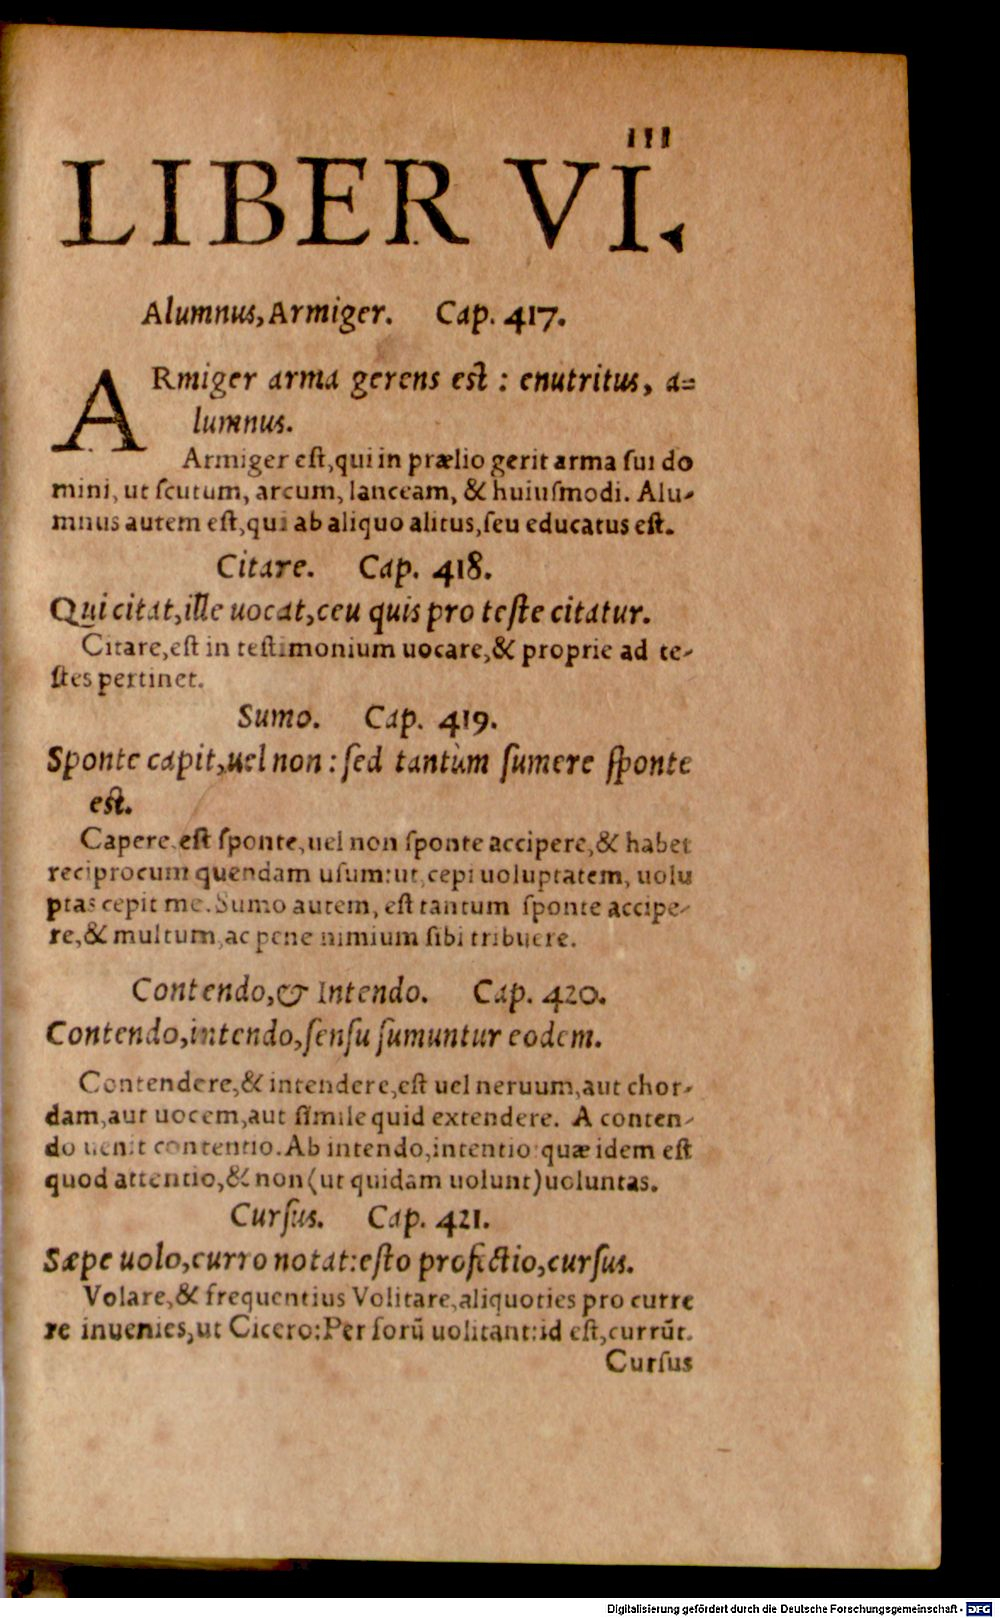 III
LIBER VI.
Alumnus, Armiger. Cap. 417.
ARmiger arma gerens est : enutritus, a=
lumnus.
Armiger eſt, qui in prælio gerit arma ſui do
mini, ut ſcutum, arcum, lanceam, & huiuſmodi. Alu-
mnus autem eſt, qui ab aliquo alitus, ſeu educatus eſt.
Citare. Cap. 418.
Qui citat, ille uocat, ceu quis pro teſte citatur.
Citare, eſt in teſtimonium uocare, & proprie ad te-
ſtes pertinet.
Sumo. Cap. 419.
Sponte capit, uel non : ſed tantùm ſumere ſponte
est.
Capere eſt ſponte, uel non ſponte accipere, & habet
reciprocum quendam uſum: ut, cepi uoluptatem, uolu
ptas cepit me. Sumo autem, eſt tantum ſponte accipe-
re, & multum, ac pene nimium ſibi tribuere.
Contendo, & Intendo. Cap. 420.
Contendo, intendo, ſenſu ſumuntur eodem.
Contendere, & intendere, eſt uel neruum, aut chor-
dam, aut uocem, aut ſimile quid extendere. A conten-
do uenit contentio. Ab intendo, intentio: quæ idem eſt
quod attentio, & non (ut quidam uolunt) uoluntas.
Curſus. Cap. 421.
Sæpe uolo, curro notat: eſto profictio, curſus.
Volare, & frequentius Volitare, aliquoties pro curre
re inuenies, ut Cicero: Per forũ uolitant: id eſt, currũt.
Curſus
Digitalisierung gefördert durch die Deutsche Forschungsgemeinschaft - DFG